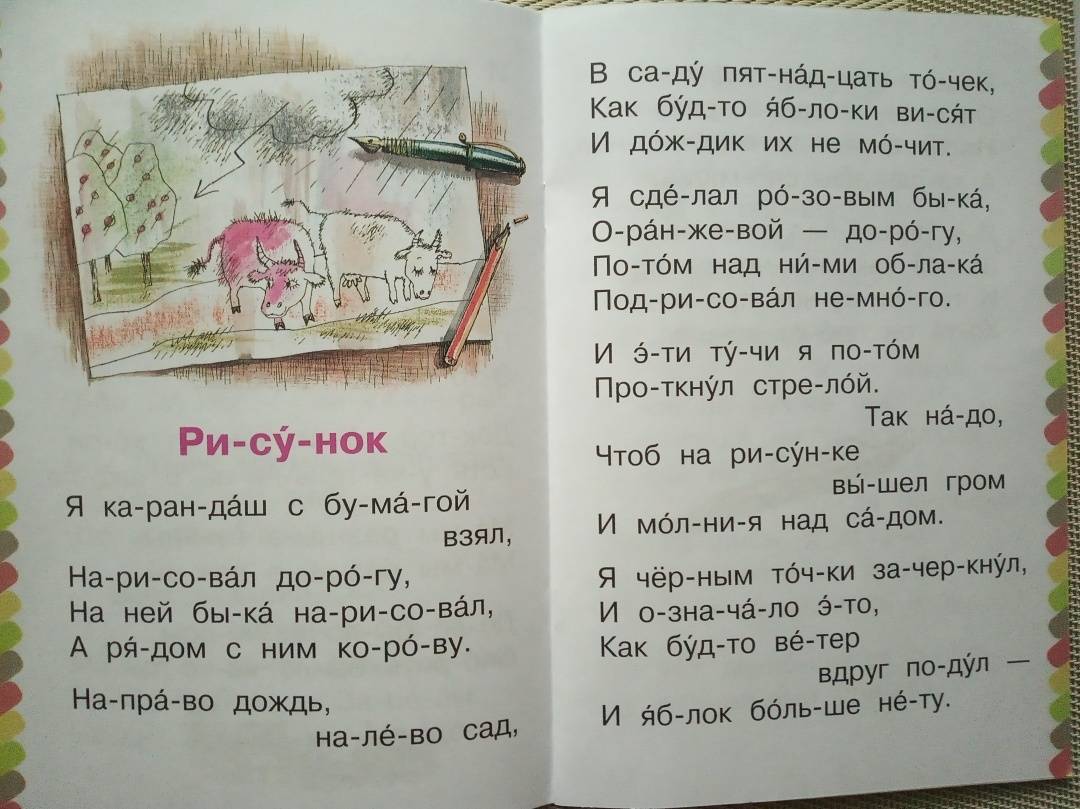 Ри-су́-нок
Я ка-ран-да́ш с бу-ма́-гой
взял,
На-ри-со-ва́л до-ро́-гу,
На ней бы-ка́ на-ри-со-ва́л,
А ря́-дом с ним ко-ро́-ву.
На-пра́-во дождь,
на-ле́-во сад,
В са-ду́ пят-на́д-цать то́-чек,
Как бу́д-то я́б-ло-ки ви-ся́т
И до́ж-дик их не мо́-чит.
Я сде́-лал ро́-зо-вым бы-ка́,
О-ра́н-же-вой — до-ро́-гу,
По-то́м над ни́-ми об-ла-ка́
Под-ри-со-ва́л не-мно́-го.
И э́-ти ту́-чи я по-то́м
Про-ткну́л стре-ло́й.
Так на́-до,
Чтоб на ри-су́н-ке
вы́-шел гром
И мо́л-ни-я над са́-дом.
Я чёр-ным то́ч-ки за-чер-кну́л,
И о-зна-ча́-ло э́-то,
Как бу́д-то ве́-тер
вдруг по-ду́л —
И я́б-лок бо́ль-ше не́-ту.